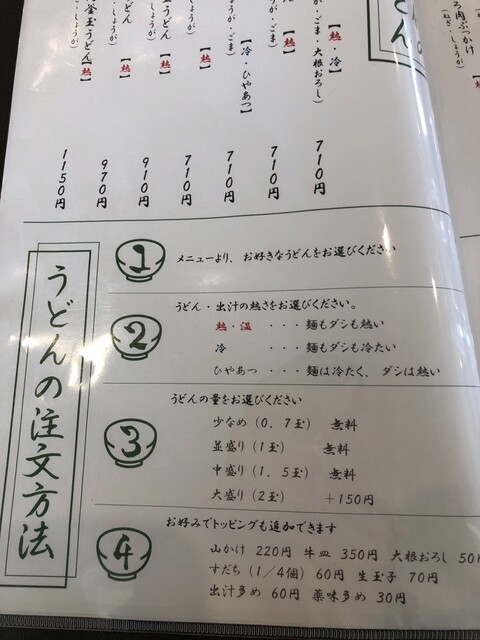 どん。
ろ肉ぶっかけ
(ねぎ・しょうが)
が・ごま・大根おろし)
【熱・冷】
710円
が・ごま)
【熱】
710円
が・ごま)
【冷・ひやあつ】
710円
うどん
しょうが)
【熱】
710円
【熱】
910円
どん
【熱】
970円
釜玉うどん【熱】
しょうが)
1150円
うどんの注文方法
1 メニューより、お好きなうどんをお選びください
2 うどん・出汁の熱さをお選びください。
熱・温 ・・・麺もダシも熱い
冷 ・・・麺もダシも冷たい
ひやあつ ・・・麺は冷たく、ダシは熱い
3 うどんの量をお選びください
少なめ(0.7玉) 無料
並盛り(1玉) 無料
中盛り(1.5玉) 無料
大盛り(2玉) +150円
4 お好みでトッピングも追加できます
山かけ 220円 牛皿 350円 大根おろし 50円
すだち(1/4個) 60円 生玉子 70円
出汁多め 60円 薬味多め 30円